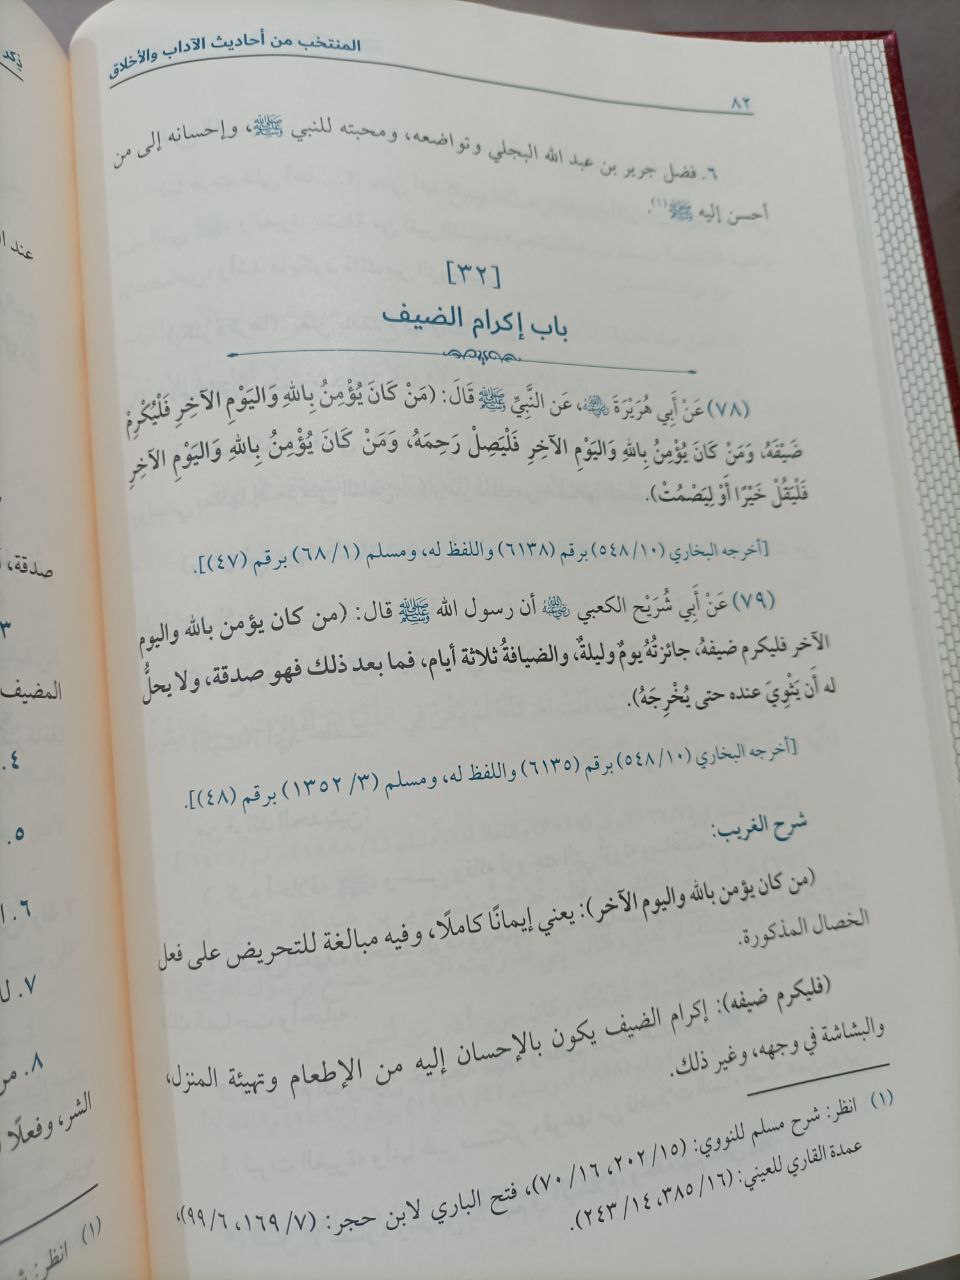 المنتخب من أحاديث الآداب والأخلاق
٨٢
٦. فضل جرير بن عبد الله البجلي وتواضعه، ومحبته للنبي ﷺ، وإحسانه إلى من
أحسن إليه ﷺ(١).
[٣٢]
باب إكرام الضيف
(٧٨) عَنْ أَبِي هُرَيْرَةَ رضي الله عنه، عَن النَّبِيِّ ﷺ قَالَ: (مَنْ كَانَ يُؤْمِنُ بِاللهِ وَاليَوْمِ الآخِرِ فَلْيُكْرِمْ
ضَيْفَهُ، وَمَنْ كَانَ يُؤْمِنُ بِاللهِ وَاليَوْمِ الآخِرِ فَلْيَصِلْ رَحِمَهُ، وَمَنْ كَانَ يُؤْمِنُ بِاللهِ وَاليَوْمِ الآخِرِ
فَلْيَقُلْ خَيْرًا أَوْ لِيَصْمُتْ).
[أخرجه البخاري (٥٤٨/١٠) برقم (٦١٣٨) واللفظ له، ومسلم (٦٨/١) برقم (٤٧)].
(٧٩) عَنْ أَبِي شُرَيْحٍ الكعبي رضي الله عنه أن رسول الله ﷺ قال: (من كان يؤمن بالله واليوم
الآخر فليكرم ضيفهُ، جائزتُهُ يومٌ وليلةٌ، والضيافةُ ثلاثة أيام، فما بعد ذلك فهو صدقة، ولا يحلُّ
له أن يَثْوِيَ عنده حتى يُخْرِجَهُ).
[أخرجه البخاري (٥٤٨/١٠) برقم (٦١٣٥) واللفظ له، ومسلم (١٣٥٢/٣) برقم (٤٨)].
شرح الغريب:
(من كان يؤمن بالله واليوم الآخر): يعني إيمانًا كاملًا، وفيه مبالغة للتحريض على فعل
الخصال المذكورة.
(فليكرم ضيفه): إكرام الضيف يكون بالإحسان إليه من الإطعام وتهيئة المنزل،
والبشاشة في وجهه، وغير ذلك.
(١) انظر: شرح مسلم للنووي: (٢٠٢/١٥، ٧٠/١٦)، فتح الباري لابن حجر: (١٦٩/٧، ٩٩/٦)،
عمدة القاري للعيني: (٣٨٥/١٦، ٢٤٣/١٤).
عند
صدقة،
٣
المضيف
٤.
٥.
٦.
٧.
٨. من
الشر، وفعلًا
(١) انظر: